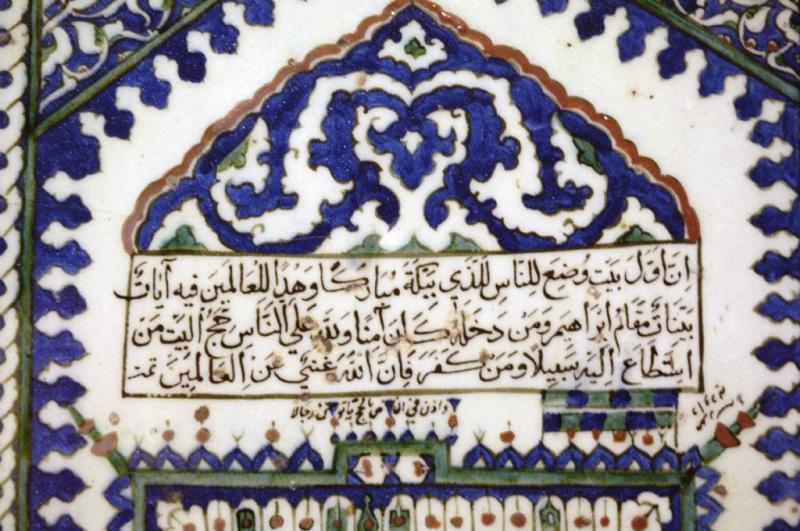 ان اول بيت وُضِعَ للنّاسِ للّذي ببكّة مُباركًا وهدًا للعالمين فيه آياتٌ
بيناتٌ مقام ابراهيم ومن دخله كان آمنًا ولله علي الناس حجّ البيت من
استطاع اليه سبيلًا ومن كفر فان الله غنيّ عن العالمين تمت
واذن في الناس بالحج ياتوك رجالا